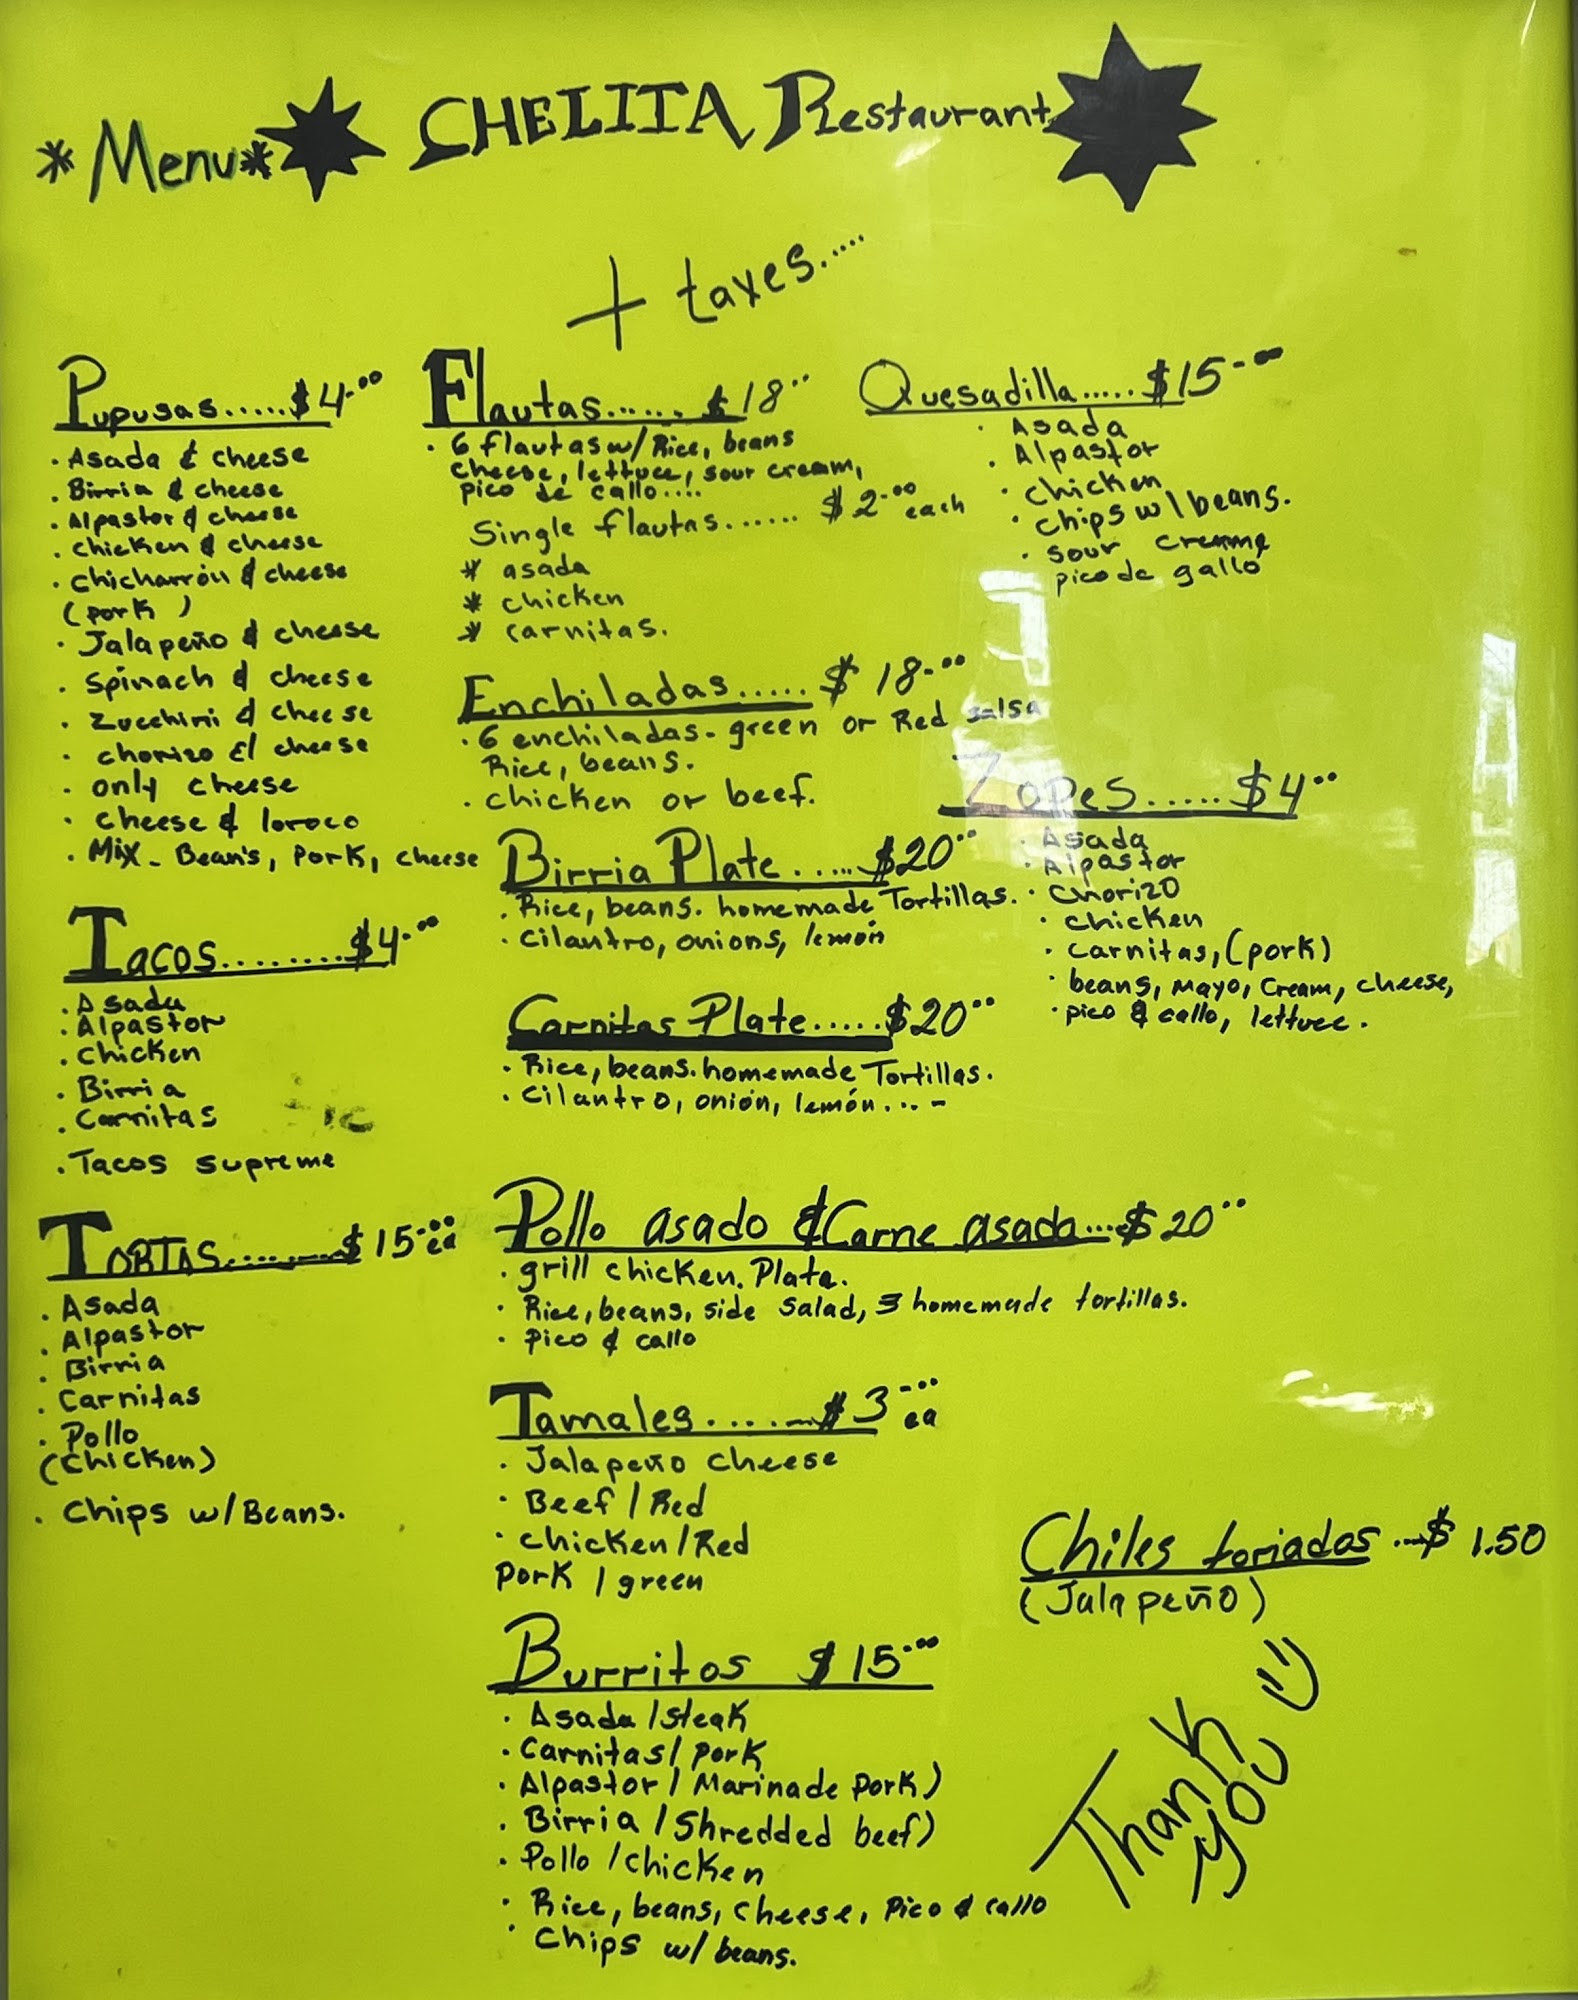 * Menu * CHELITA Restaurant
+ taxes.....
Pupusas.....$4.00
· Asada & cheese
· Birria & cheese
· Alpastor & cheese
· chicken & cheese
· chicharrón & cheese
(pork )
· Jalapeño & cheese
· spinach & cheese
· zucchini & cheese
· chorizo & cheese
· only cheese
· cheese & loroco
· Mix - Bean's, pork, cheese
Tacos........$4.00
· Asada
· Alpastor
· chicken
· Birria
· Carnitas
· Tacos supreme
Tortas........$15.00 ea
· Asada
· Alpastor
· Birria
· Carnitas
· Pollo
(chicken)
· Chips w/Beans.
Flautas...... $18..
· 6 flautas w/ Rice, beans
cheese, lettuce, sour cream,
pico de callo....
Single flautas...... $2.00 each
* asada
* chicken
* carnitas.
Enchiladas..... $18.00
· 6 enchiladas. green or Red salsa
Rice, beans.
· chicken or beef.
Birria Plate.....$20..
· Rice, beans. homemade Tortillas.
· cilantro, onions, lemón
Carnitas Plate.....$20..
· Rice, beans. homemade Tortillas.
· cilantro, onión, lemón... -
Pollo asado & Carne asada...$20..
· grill chicken. Plate.
· Rice, beans, side salad, 3 homemade tortillas.
· pico & callo
Tamales......$3.00 ea
· Jalapeño cheese
· Beef / Red
· chicken/Red
pork / green
Burritos $15.00
· Asada /steak
· Carnitas/ pork
· Alpastor / Marinade pork)
· Birria /Shredded beef)
· Pollo /chicken
· Rice, beans, cheese, pico & callo
· Chips w/ beans.
Quesadilla.....$15.00
· Asada
· Alpastor
· chicken
· chips w/beans.
· sour creame
pico de gallo
Zopes.....$4..
· Asada
· Alpastor
· chorizo
· chicken
· carnitas, (pork)
· beans, mayo, cream, cheese,
· pico & callo, lettuce.
Chiles toriados...$ 1.50
(Jalapeño)
Thank
you